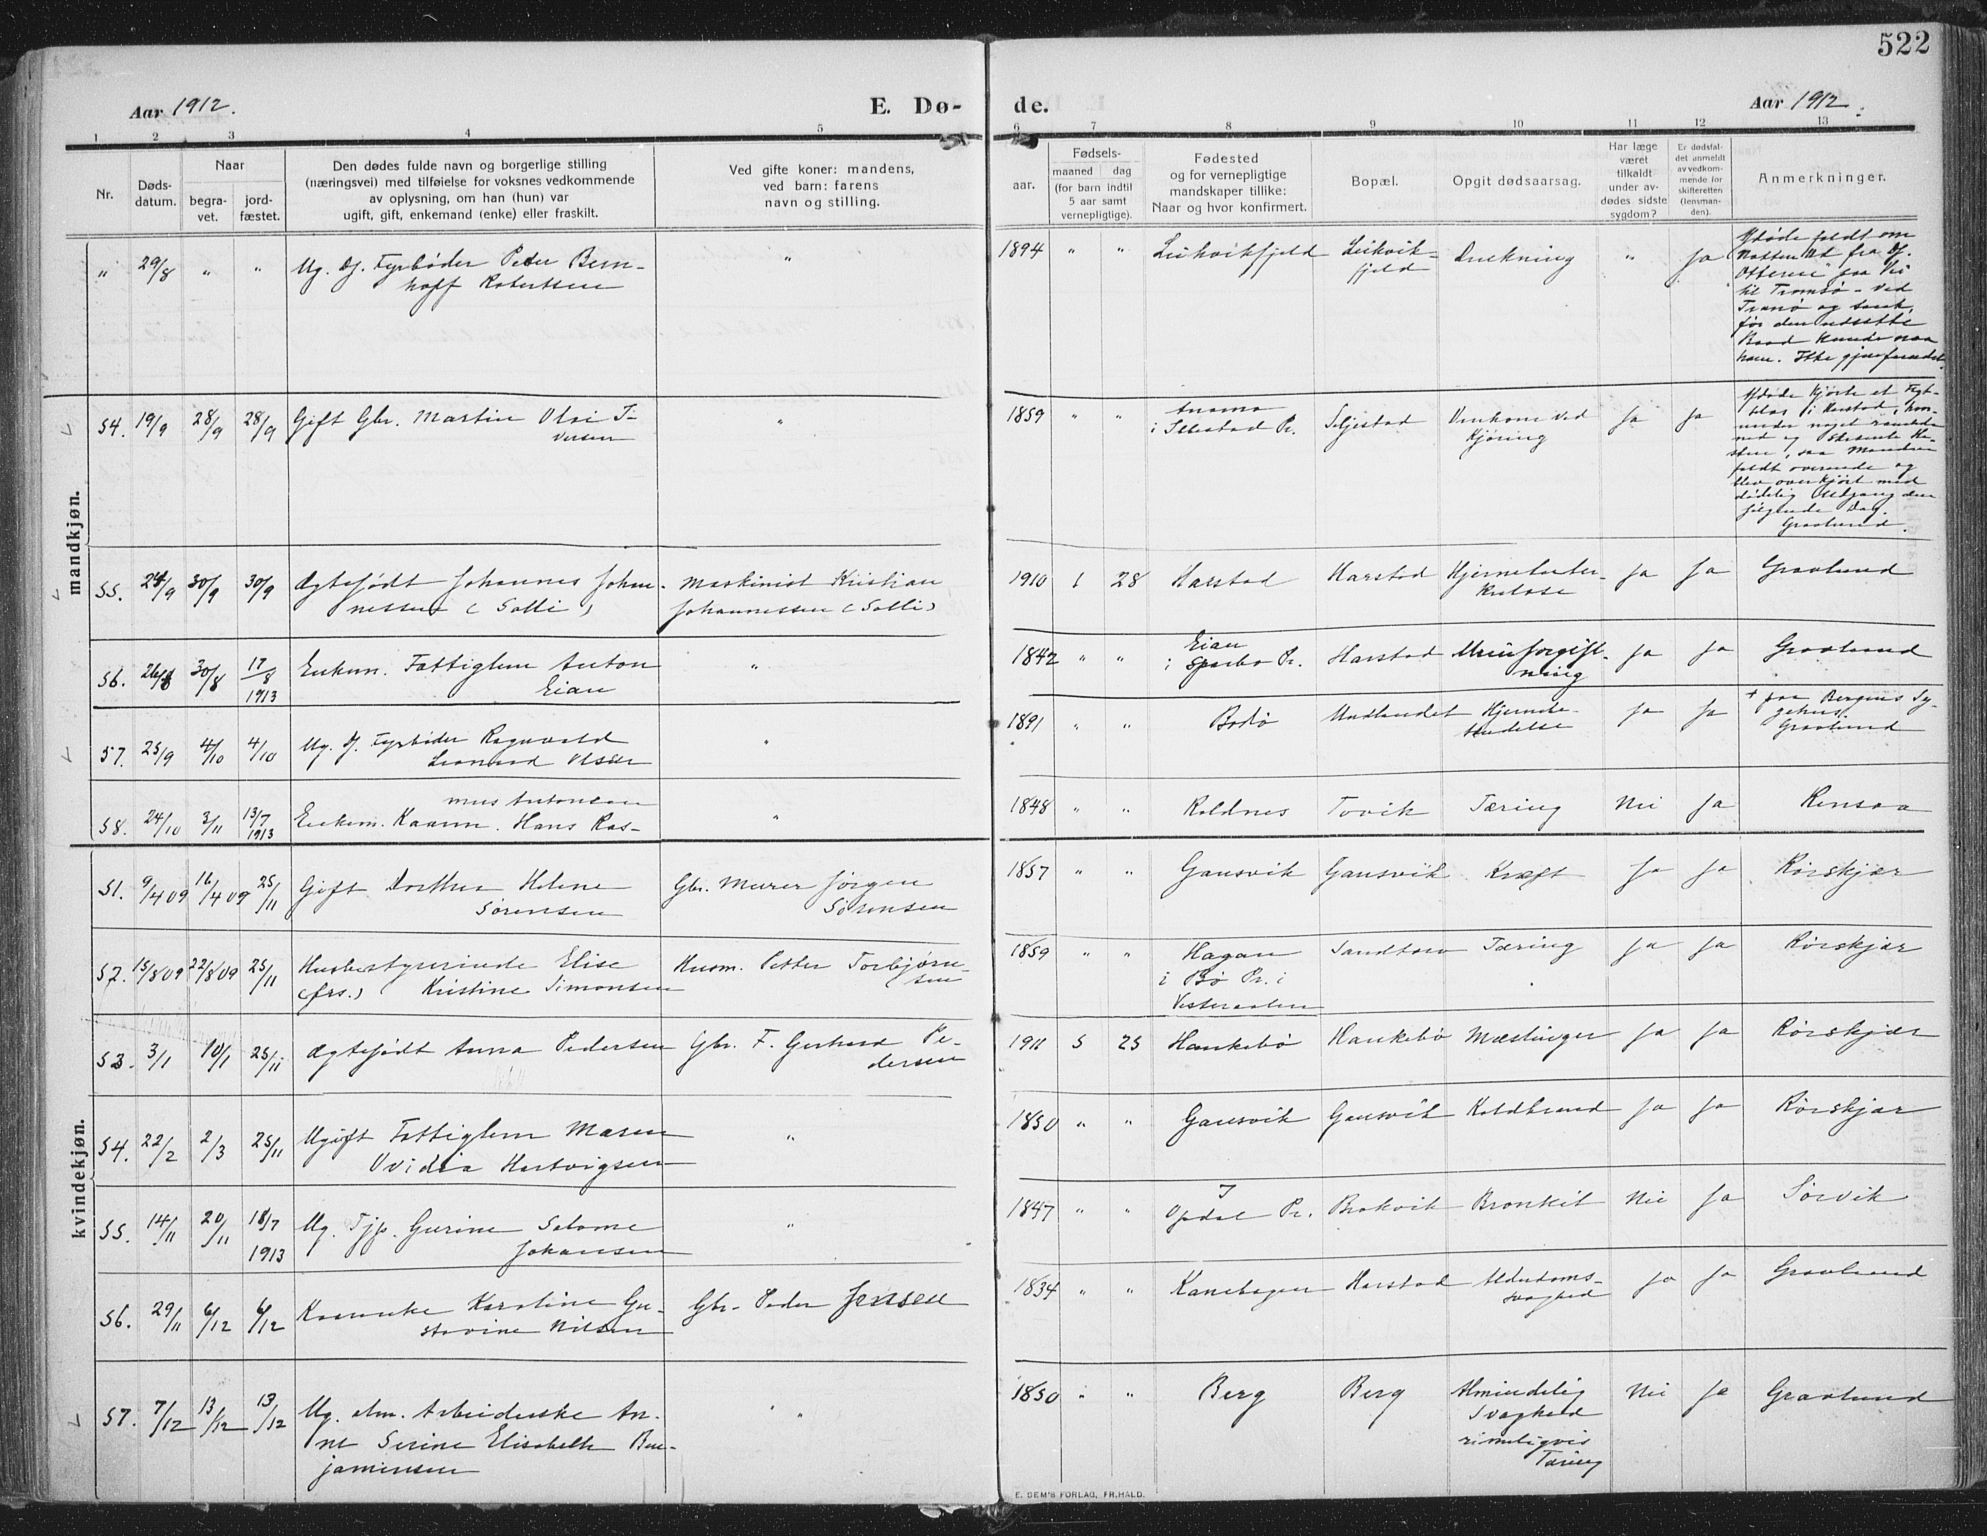 522
Aar 1912.
E. Dø-
de.
Aar 1912.
1 2 3 4 5 6 7 8 9 10 11 12 13
Nr.
Døds-
datum.
Naar
begra-
vet.
jord-
fæstet.
Den dødes fulde navn og borgerlige stilling
(næringsvei) med tilføielse for voksnes vedkommende
av oplysning, om han (hun) var
ugift, gift, enkemand (enke) eller fraskilt.
Ved gifte koner: mandens,
ved barn: farens
navn og stilling.
Fødsels-
aar.
maaned dag
(for barn indtil
5 aar samt
vernepligtige).
Fødested
og for vernepligtige
mandskaper tillike:
Naar og hvor konfirmert.
Bopæl.
Opgit dødsaarsag.
Har læge
været
tilkaldt
under av-
dødes sidste
sygdom?
Er dødsfal-
det anmeldt
av vedkom-
mende for
skifteretten
(lensman-
den).
Anmerkninger.
mandkjøn.
" 29/8 " " Ug. Df. Fyrbøder Peter Bern-
hoff Robertsen
"
1894 " " " Ja
Drukning
til Tromsø - ved
Tranø og sank,
før den udsatte
Baad kunde naa
ham. Ikke gjenfundet.
54. 19/9 28/9 28/9 Gift Gbr. Martin Olai I-
versen
"
1859 " " i Ibbestad Pr. Seljestad Omkom ved
Kjøring
Ja Ja
Afdøde kjørte et
i Harstad,
saa Manden
faldt overende og
blev overkjørt med
dødelig Udgang den
følgende Dag.
Gravlund.
55. 24/9 30/9 30/9 Ægtefødt Johannes Johan-
nessen (Solli)
Maskinist Kristian
Johannessen (Solli)
1910 1 28 Harstad Harstad Hjernetuber-
kulose
Ja Ja Gravlund
56. 26/8 30/8 17/8
1913
Enkem. Fattiglem Anton
Eian
"
1842 " " Eian
i Sparbo Pr. Harstad Urinforgift-
ning
Ja Ja Gravlund
57. 25/9 4/10 4/10 Ug. Df. Fyrbøder Ragnvald
Leonard Olsen
"
1891 " " Bodø Ja Ja
+ paa Bergens Sy-
gehus.
Gravlund
58. 24/10 3/11 13/7
1913
mus Antonsen
Enkem. Kaarm. Hans Ras-
"
1848 " " Roldnes Tovik Tæring Nei Ja Rensaa
kvindekjøn.
51. 9/4 09 16/4 09 25/11 Gift Dorthea Helene
Sørensen
Gbr. Murer Jørgen
Sørensen
1857 " " Gausvik Gausvik Kræft Ja Ja Rørskjær
52. 15/8 09 22/8 09 25/11 Husbestyrerinde Elise
(frs.) Kristine Simonsen
Husm. Petter Torbjørn-
sen
1859 " " Hagan
i Bø Pr. i
Vesteraalen
Sandtorv Tæring Ja Ja Rørskjær
53. 3/1 10/1 25/11 Ægtefødt Anna Pedersen
Gbr. F. Gerhard Pe-
dersen
1911 5 25 Haukebø Haukebø Mæslinger Ja Ja Rørskjær
54. 22/2 2/3 25/11 Ugift Fattiglem Maren
Ovidia Hartvigsen
"
1850 " " Gausvik Gausvik Koldbrand Ja Ja Rørskjær
55. 14/11 20/11 18/7
1913
Ug. Tjp. Gurine Salome
Johansen
"
1847 " " I
Opdal Pr. Brokvik Bronkit Nei Ja Sørvik
56. 29/11 6/12 6/12 Kaarenke Karoline Gu-
stavine Nilsen
Gbr. Peder Jensen
1834 " " Kanebogen Harstad Alderdoms-
svaghed
Ja Ja Gravlund
57. 7/12 13/12 13/12 Ug. alm. Arbeiderske An-
ne Serine Elisabeth Ben-
jaminsen
" "
1850 " " Berg Berg Almindelig
Svaghed
rimeligvis
Tæring
Nei Ja Gravlund
E. SEM'S FORLAG, FR.HALD.